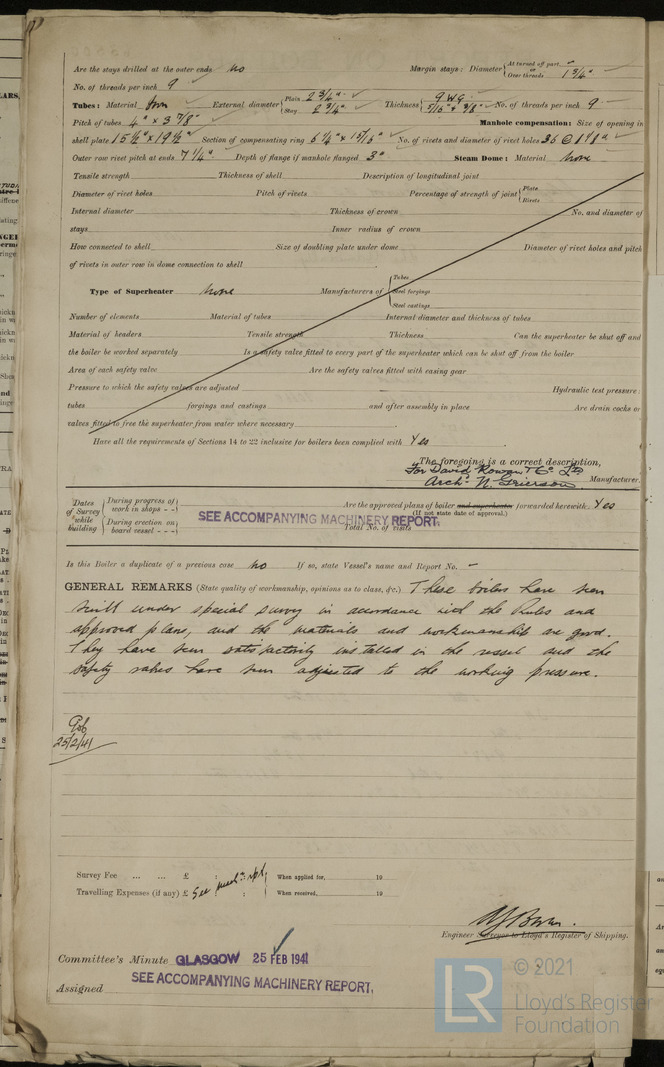 Are the stays drilled at the outer ends no Margin stays: Diameter { At turned off part - or Over threads 1 3/4"
No. of threads per inch 9
Tubes: Material Iron External diameter { Plain 2 3/4" Stay 2 3/4" Thickness { 9 WG 5/16" & 3/8" No. of threads per inch 9
Pitch of tubes 4" x 3 7/8" Manhole compensation: Size of opening in
shell plate 15 1/2" x 19 1/2" Section of compensating ring 6 1/4" x 15/16" No. of rivets and diameter of rivet holes 36 @ 1 1/8"
Outer row rivet pitch at ends 7 1/4" Depth of flange if manhole flanged 3" Steam Dome: Material None
Tensile strength Thickness of shell Description of longitudinal joint
Diameter of rivet holes Pitch of rivets Percentage of strength of joint { Plate Rivets
Internal diameter Thickness of crown No. and diameter of
stays Inner radius of crown
How connected to shell Size of doubling plate under dome Diameter of rivet holes and pitch
of rivets in outer row in dome connection to shell
Type of Superheater None Manufacturers of { Tubes Steel forgings Steel castings
Number of elements Material of tubes Internal diameter and thickness of tubes
Material of headers Tensile strength Thickness Can the superheater be shut off and
the boiler be worked separately Is a safety valve fitted to every part of the superheater which can be shut off from the boiler
Area of each safety valve Are the safety valves fitted with easing gear
Pressure to which the safety valves are adjusted Hydraulic test pressure:
tubes forgings and castings and after assembly in place Are drain cocks or
valves fitted to free the superheater from water where necessary
Have all the requirements of Sections 14 to 22 inclusive for boilers been complied with Yes
The foregoing is a correct description,
For David Rowan & Co Ltd
Archd N. Grierson Manufacturer.
Dates of Survey while building { During progress of work in shops - - During erection on board vessel - - -
SEE ACCOMPANYING MACHINERY REPORT.
Are the approved plans of boiler and superheater forwarded herewith Yes
(If not state date of approval.)
Total No. of visits
Is this Boiler a duplicate of a previous case no If so, state Vessel's name and Report No. -
GENERAL REMARKS (State quality of workmanship, opinions as to class, &c.) These boilers have been
built under special survey in accordance with the Rules and
approved plans, and the materials and workmanship are good.
They have been satisfactorily installed in the vessel and the
safety valves have been adjusted to the working pressure.
25/2/41
Survey Fee ... ... £ : : When applied for, 19
Travelling Expenses (if any) £ See mach. rpt. : : When received, 19
Engineer Surveyor to Lloyd's Register of Shipping.
Committee's Minute GLASGOW 25 FEB 1941
Assigned SEE ACCOMPANYING MACHINERY REPORT.
LR © 2021 Lloyd's Register Foundation